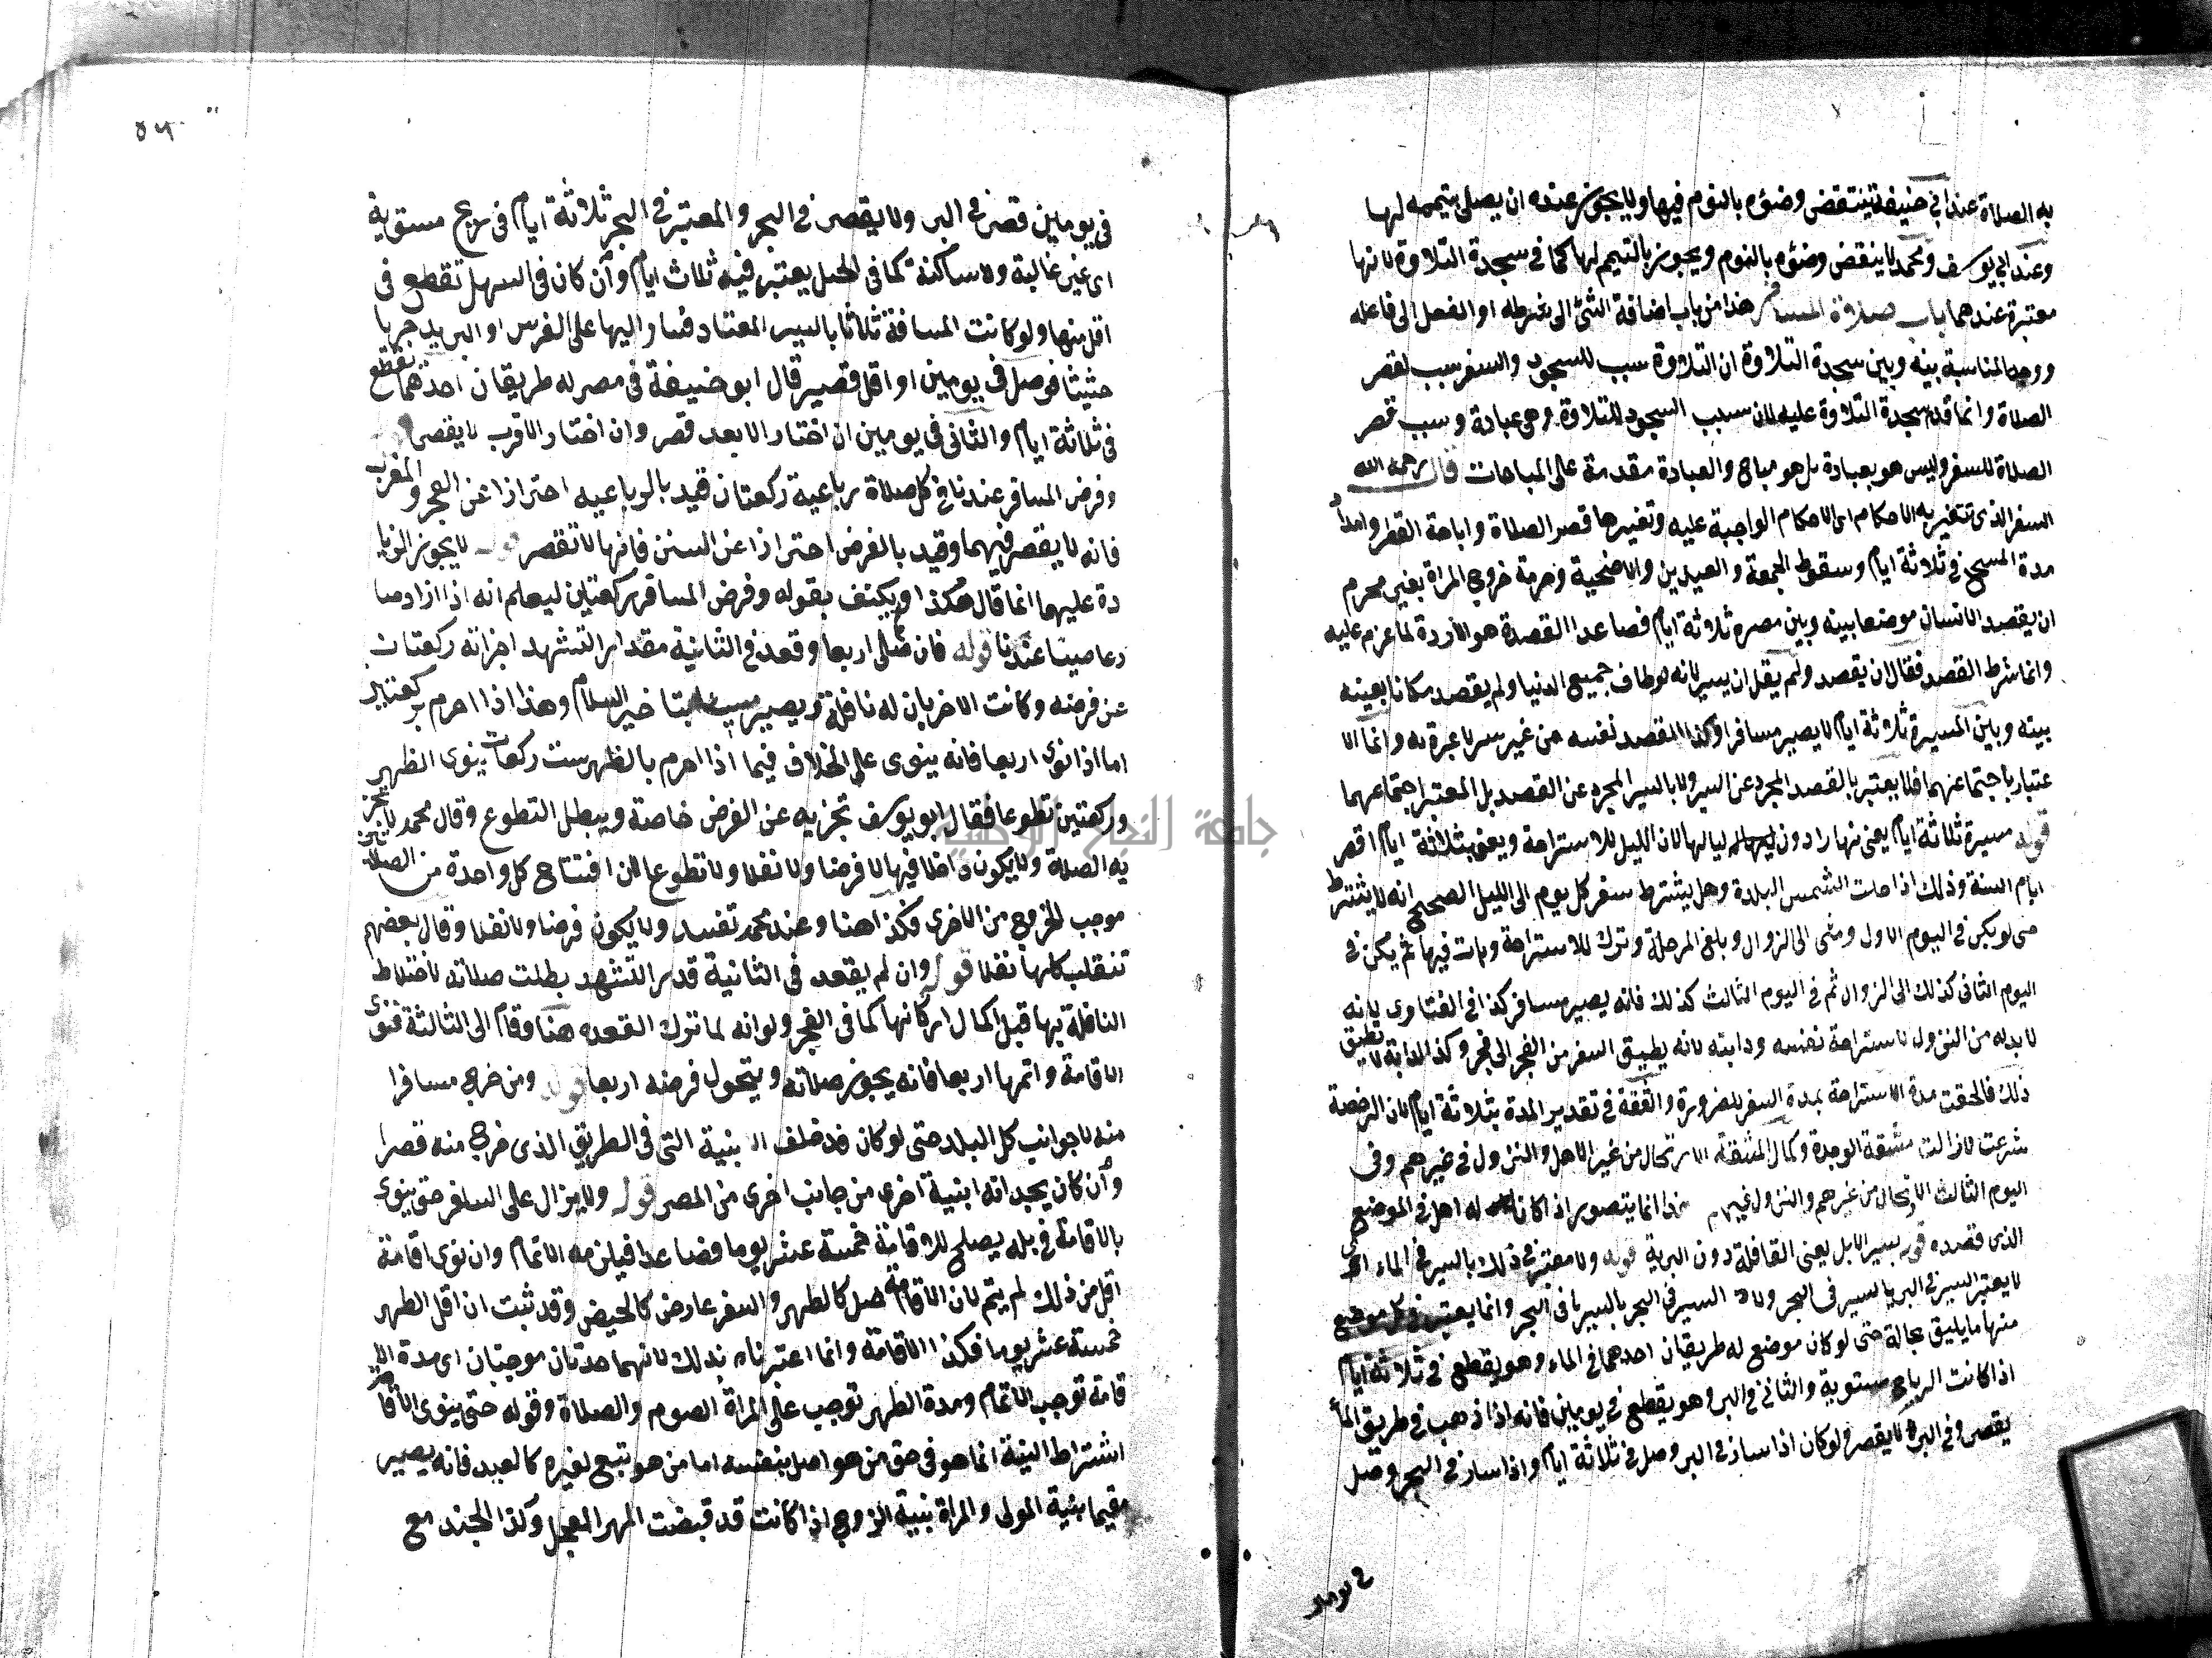 به الصلاة عند ابي حنيفة تنتقض وضؤه بالنوم فيها ولا يجوز عنده ان يصلى بتيممه لها
وعند ابي يوسف ومحمد لا ينقض وضؤه بالنوم ويجوز بالتيمم لها كما في سجدة التلاوة لانها
معتبرة عندهما باب صلاة المسافر هذا من باب اضافة الشئ الى شرطه او الفعل الى فاعله
ووجه المناسبة بينه وبين سجدة التلاوة ان التلاوة سبب للسجود والسفر سبب لقصر
الصلاة وانما قدم سجدة التلاوة عليه لان سبب السجود للتلاوة وهي عبادة وسبب قصر
الصلاة للسفر وليس هو بعبادة بل هو مباح والعبادة مقدمة على المباحات قال رحمه الله
السفر الذى تتغير به الاحكام اى الاحكام الواجبة عليه وتغيرها قصر الصلاة واباحة الفطر وامتداد
مدة المسح في ثلاثة ايام وسقوط الجمعة والعيدين والاضحية وحرمة خروج المراة بغير محرم
ان يقصد الانسان موضعا بينه وبين مصره ثلاثة ايام فصاعدا القصد هو الارادة لما عزم عليه
وانما شرط القصد فقال ان يقصد ولم يقل ان يسير لانه لو طاف جميع الدنيا ولم يقصد مكانا بعينه
بينه وبين المسيرة ثلاثة ايام لا يصير مسافرا وكذا القصد نفسه من غير سير لا عبرة به وانما الا
عتبار باجتماعهما فلا يعتبر بالقصد المجرد عن السير ولا بالسير المجرد عن القصد بل المعتبر اجتماعهما
قوله مسيرة ثلاثة ايام يعنى نهارا دون لياليها لان الليل للاستراحة ويعنى بثلاثة ايام اقصر
ايام السنة وذلك اذا حلت الشمس البلدة وهل يشترط سفر كل يوم الى الليل الصحيح انه لا يشترط
حتى لو بكر في اليوم الاول ومشى الى الزوال وبلغ المرحلة وترك للاستراحة وبات فيها ثم بكر في
اليوم الثانى كذلك الى الزوال ثم في اليوم الثالث كذلك فانه يصير مسافر كذا في الفتاوى لانه
لا بد له من النزول لاستراحة نفسه ودابته لانه يطيق السفر من الفجر الى فجر وكذا الدابة لا تطيق
ذلك فالحقت مدة الاستراحة بمدة السفر للضرورة والفقه في تقدير المدة بثلاثة ايام لان الرخصة
شرعت لازالت مشقة الوحدة وكمال المشقة الارتحال من غير الاهل والنزول في غيرهم وفى
اليوم الثالث الارتحال من غيرهم والنزول فيهم هذا انما يتصور اذا كان له اهل في الموضع
الذى قصده قوله بسير الابل يعنى القافلة دون البرية قوله ولا معتبر في ذلك بالسير في الماء اى
لا يعتبر السير في البر بالسير في البحر ولا السير في البحر بالسير في البحر وانما يعتبر في كل موضع
منها ما يليق بحالة حتى لو كان موضع له طريقان احدهما في الماء وهو يقطع في ثلاثة ايام
اذا كانت الرياح مستوية والثانى في البر وهو يقطع في يومين فانه اذا ذهب في طريق الماء
يقصر وفي البر لا يقصر ولو كان اذا سار في البر وصل في ثلاثة ايام واذا سار في البحر وصل
في يومين
٥٦
في يومين قصر في البر ولا يقصر في البحر والمعتبر في البحر ثلاثة ايام في ريح مستوية
اى غير غالبة ولا ساكنة كما في الجبل يعتبر فيه ثلاث ايام وان كان في السهل تقطع في
اقل منها ولو كانت المسافة ثلاثا بالسير المعتاد فسار اليها على الفرس او البريد جريا
حثيثا فوصل في يومين او اقل قصير قال ابو حنيفة في مصر له طريقان احدهما تقطع
في ثلاثة ايام والثانى في يومين ان اختار الابعد قصر وان اختار الاقرب لا يقصر
وفرض المسافر عندنا في كل صلاة رباعية ركعتان قيد بالرباعيه احترازا عن الفجر والمغرب
فانه لا يقصر فيهما وقيد بالفرض احترازا عن السنن فانها لا تقصر قوله لا يجوز الزيا
دة عليهما انما قال هكذا ولم يكتف بقوله وفرض المسافر ركعتين ليعلم انه اذا زاد صا
ر عاصيا عندنا قوله فان صلى اربعا وقعد في الثانية مقدار التشهد اجزاته ركعتان
عن فرضه وكانت الاخريان له نافلة ويصير مسيئا بتاخير السلام وهذا اذا احرم بركعتين
اما اذا نوى اربعا فانه ينوى على الخلاف فيما اذا احرم بالظهر ست ركعات ينوى الظهر
وركعتين تطوعا فقال ابو يوسف تجزيه عن الفرض خاصة ويبطل التطوع وقال محمد لا تجز
يه الصلاة ولا يكون داخلا فيها لا فرضا ولا نفلا ولا تطوعا لان افتتاح كل واحدة من الصلاتين
موجب للخروج من الاخرى فكذا هنا وعند محمد تفسد ولا يكون فرضا ولا نفلا وقال بعضهم
تنقلب كلها نفلا قوله وان لم يقعد في الثانية قدر التشهد بطلت صلاته لاختلاط
النافلة بها قبل اكمال اركانها كما في الفجر ولو انه لما ترك القعده هنا وقام الى الثالثة فنوى
الاقامة واتمها اربعا فانه يجوز صلاته ويتحول فرضه اربعا قوله ومن خرج مسافرا
منه لا جوانب كل البلد حتى لو كان قد خلف الابنية التى في الطريق الذى خرج منه قصرا
وان كان يجد انه ابنية اخرى من جانب اخرى من المصر قوله ولا يزال على السفر حتى ينوى
بالاقامة في بلد يصلح للاقامة خمسة عشر يوما فصاعدا فيلزمه الاتمام وان نوى اقامة
اقل من ذلك لم يتم لان الاقامة اصل كالطهر والسفر عارض كالحيض وقد ثبت ان اقل الطهر
خمسة عشر يوما فكذا الاقامة وانما اعتبرناه بذلك لانهما مدتان موجبتان اى مدة الا
قامة توجب الاتمام ومدة الطهر توجب على المراة الصوم والصلاة وقوله حتى ينوى الاقامة
اشتراط النية انما هو في حق من هو اصل بنفسه اما من هو تبع لغيره كالعبد فانه يصير
مقيما بنية المولى والمراة بنية الزوج اذا كانت قد قبضت المهر المعجل وكذا الجند مع
جامعة النجاح الوطنية